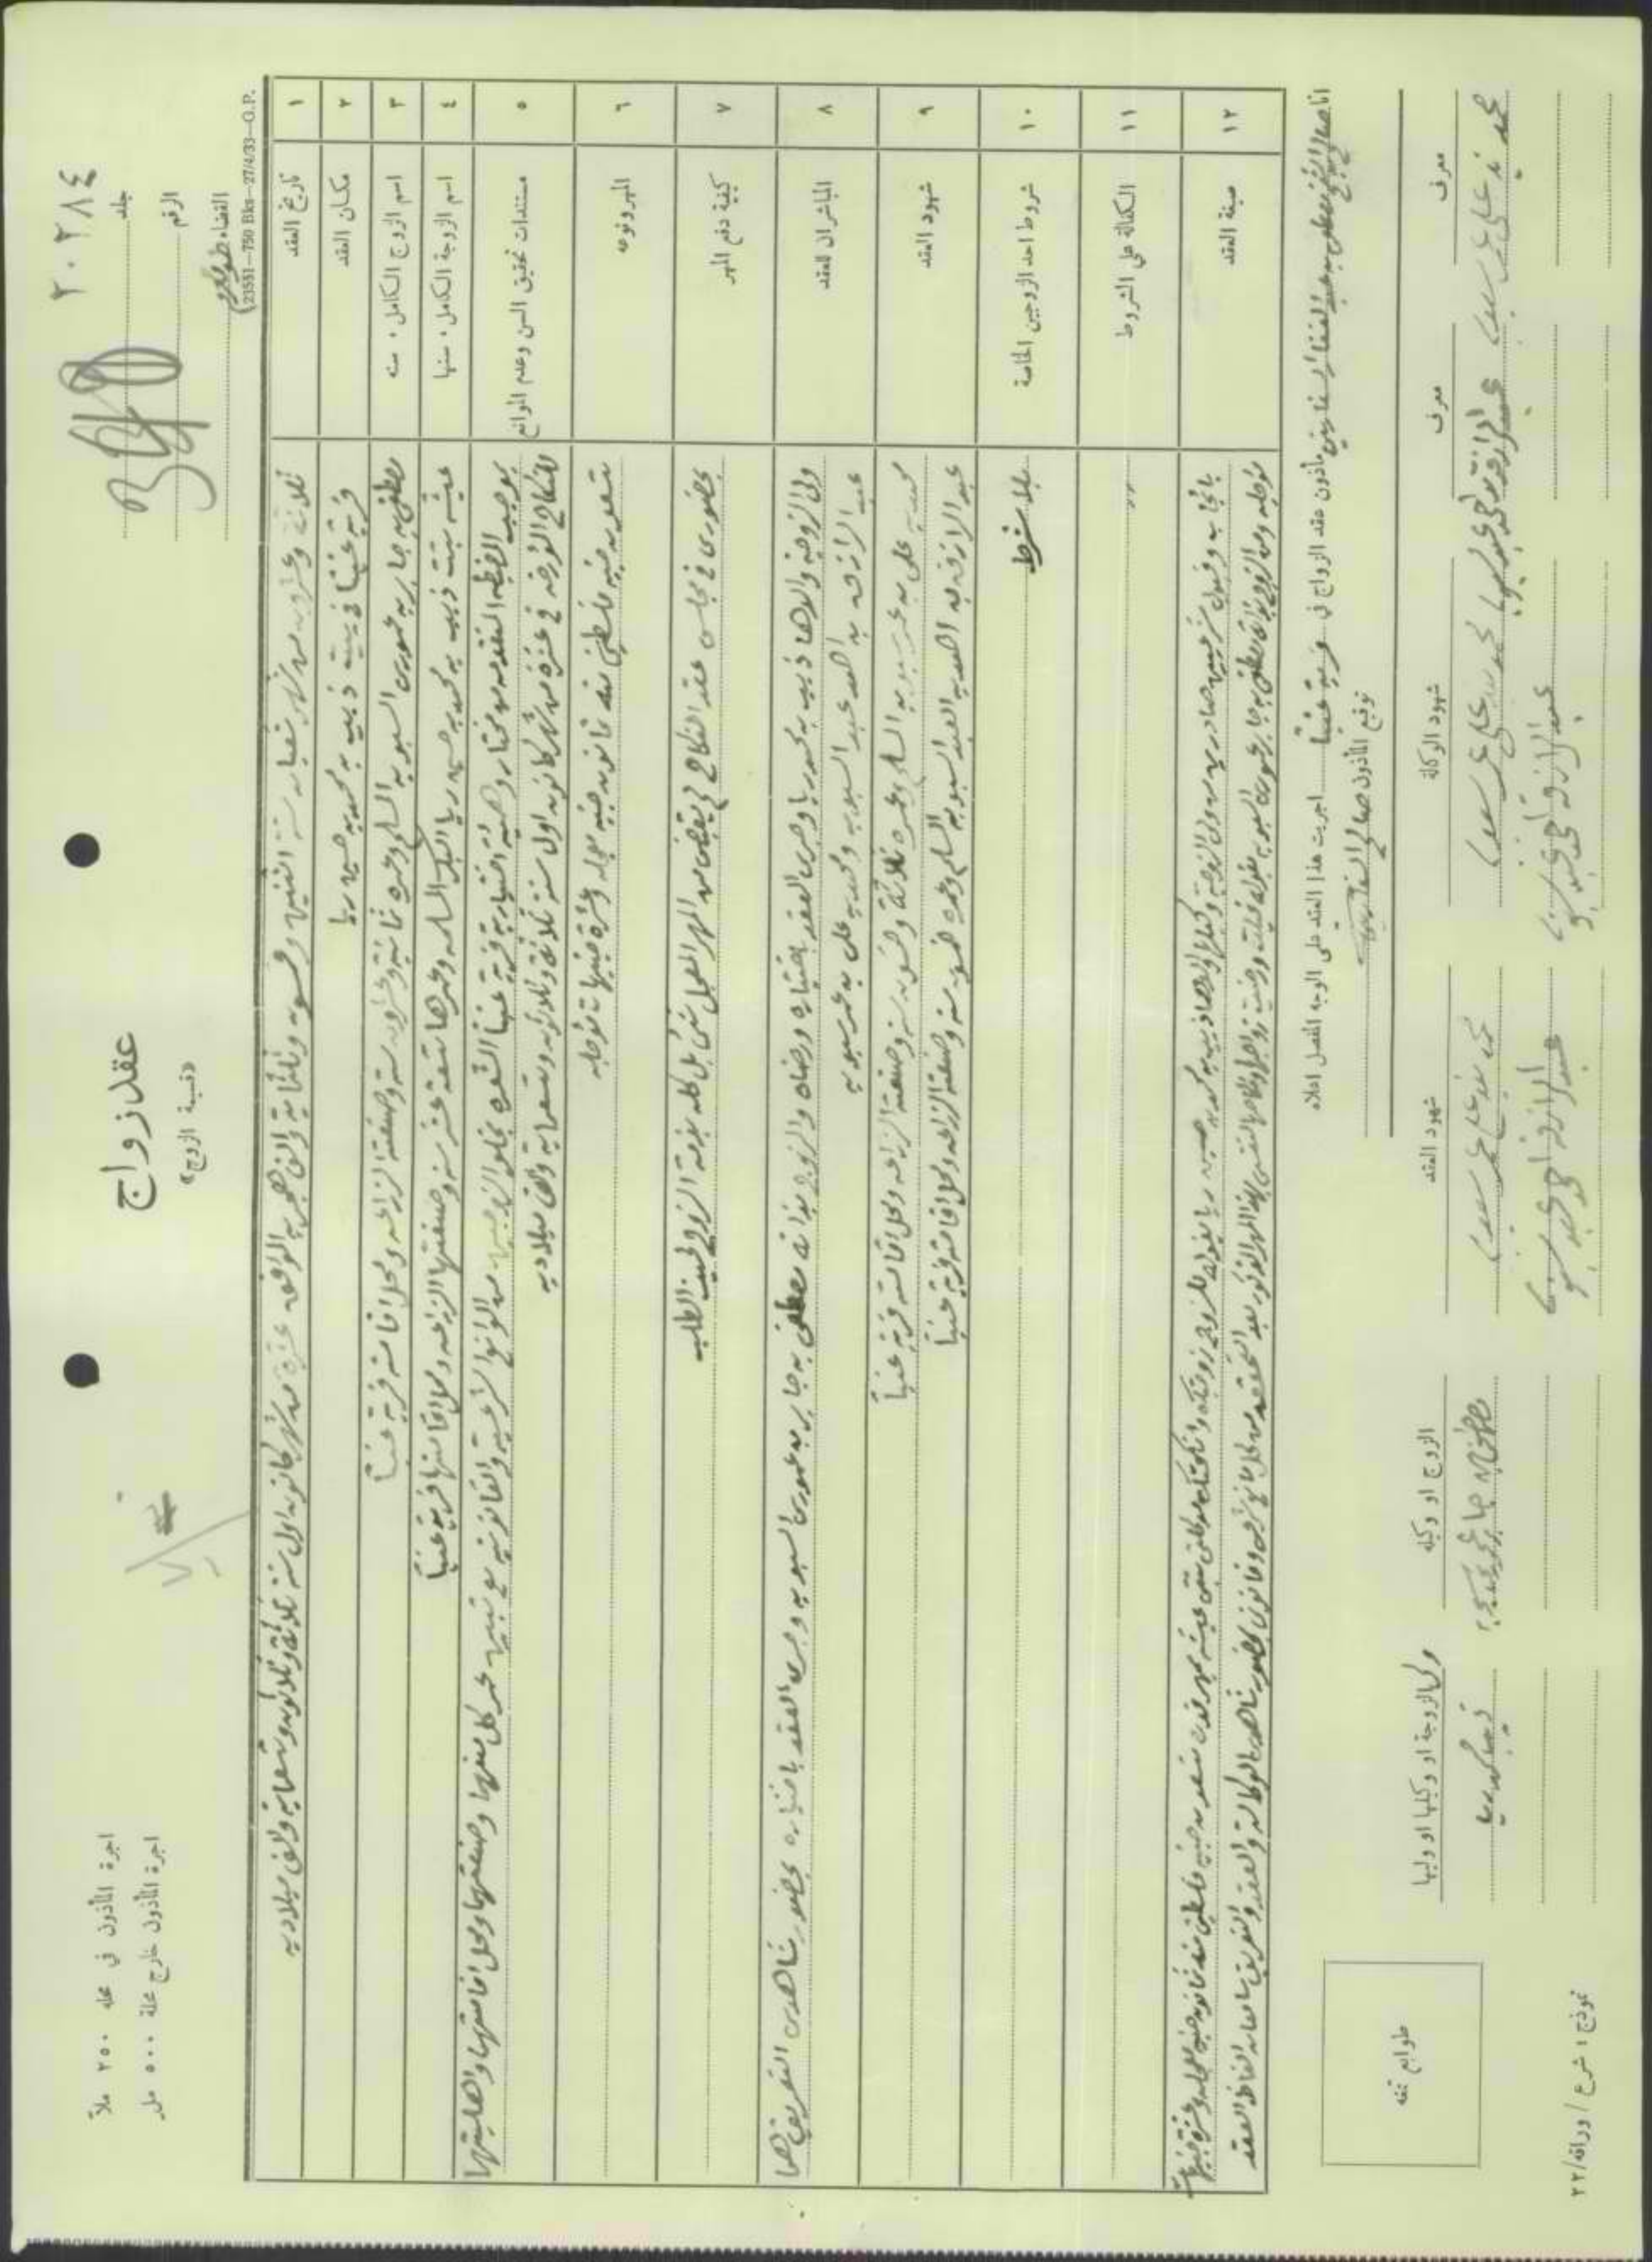 اجرة المأذون في محله ٢٥٠ ملاً
اجرة المأذون خارج محلة ٥٠٠ مل
عقد زواج
«قسيمة الزوج»
٢٠٢٨٤
جلد
الرقم
القضاء طولكرم
(23551—750 Bks—27/4/33—G.P.
١ تاريخ العقد
ثلاثة وعشرون من شهر شعبان سنة اثنين وخمسون وثلثماية والف هجريه الموافق عشرة من شهر كانون اول سنة ثلاثة وثلاثون وتسعماية والف ميلاديه
٢ مكان العقد
قرية عنبتا في بيت ذيب بن محمد بن حسين ريا
٣ اسم الزوج الكامل . سنه
مصطفى بن جابر بن عموري السبوبه المسلم وعمره ثمانية وعشرون سنة وصنعته الزراعه ومحل اقامته قرية عنبتا
٤ اسم الزوجة الكامل . سنها
عيشه بنت ذيب بن محمد بن حسين ريا البكر المسلمه وعمرها تسعة عشر سنه وصنعتها الزراعه ومحل اقامتها قرية عنبتا
٥ مستندات تحقيق السن وعدم الموانع
بموجب المضبطه المتقدمه من مختار وهيئة اختيارية قرية عنبتا المشعره بخلو الزوجين من الموانع الشرعية والقانونيه مع تبين عمر كل منهما وصنعتهما ومحل اقامتهما واهليتهما
للنكاح المؤرخه في عشرة من شهر كانون اول سنة ثلاثة وثلاثون وتسعماية والف ميلاديه
٦ المهر ونوعه
تسعون جنيه فلسطيني منه ثمانون جنيه معجله وعشرة جنيهات مؤجله
٧ كيفية دفع المهر
بحضوري في مجلس عقد النكاح لم يقبض من المهر المعجل شئ بل كله بذمة الزوج لحين الطلب
٨ المباشران للعقد
ولي الزوجه والدها ذيب بن محمد ريا وجرى العقد باختياره ورضاه والزوج بذاته مصطفى بن جابر بن عموري السبوبه وجرى العقد باختياره بحضور شاهدي التعريف هما
عبد الرازق بن احمد عبد السبوبه ومحمد بن علي بن عمر سبوبه
٩ شهود العقد
محمد بن علي بن عمر سبوبه المسلم وعمره ثلاثة وخمسون سنه وصنعته الزراعه ومحل اقامته قرية عنبتا
عبد الرازق بن احمد بن العبد السبوبه المسلم وعمره خمسون سنه وصنعته الزراعه ومحل اقامته قرية عنبتا
١٠ شروط احد الزوجين الخاصة
بلا شرط
١١ الكفالة على الشروط
〃
١٢ صيغة العقد
بايجاب وقبول شرعيين صادرين من ولي الزوجه والدها ذيب بن محمد بن حسين ريا بقوله للزوج زوجتك وانكحتك بنتي عيشه بمهر قدره تسعون جنيه فلسطيني منه ثمانون جنيه معجله وعشرة جنيهات
مؤجله ومن الزوج مصطفى بن جابر عموري السبوبه بقوله قبلت ورضيت زواجها
انا صالح مأذون عقد الزواج في قرية عنبتا اجريت هذا العقد على الوجه المفصل اعلاه
توقيع المأذون صالح السفاريني
ولي الزوجة او وكيلها او وليها
الزوج او وكيله
شهود العقد
شهود الوكالة
معرف
معرف
ذيب محمد ريا
مصطفى جابر
محمد بن علي عمر سبوبه
محمد بن علي عمر سبوبه
محمد بن علي عمر سبوبه
عبد الرازق احمد
عبد الرازق احمد
عبد الرازق احمد
طوابع تمغه
نموذج ١ شرع / وراقه/٢٢